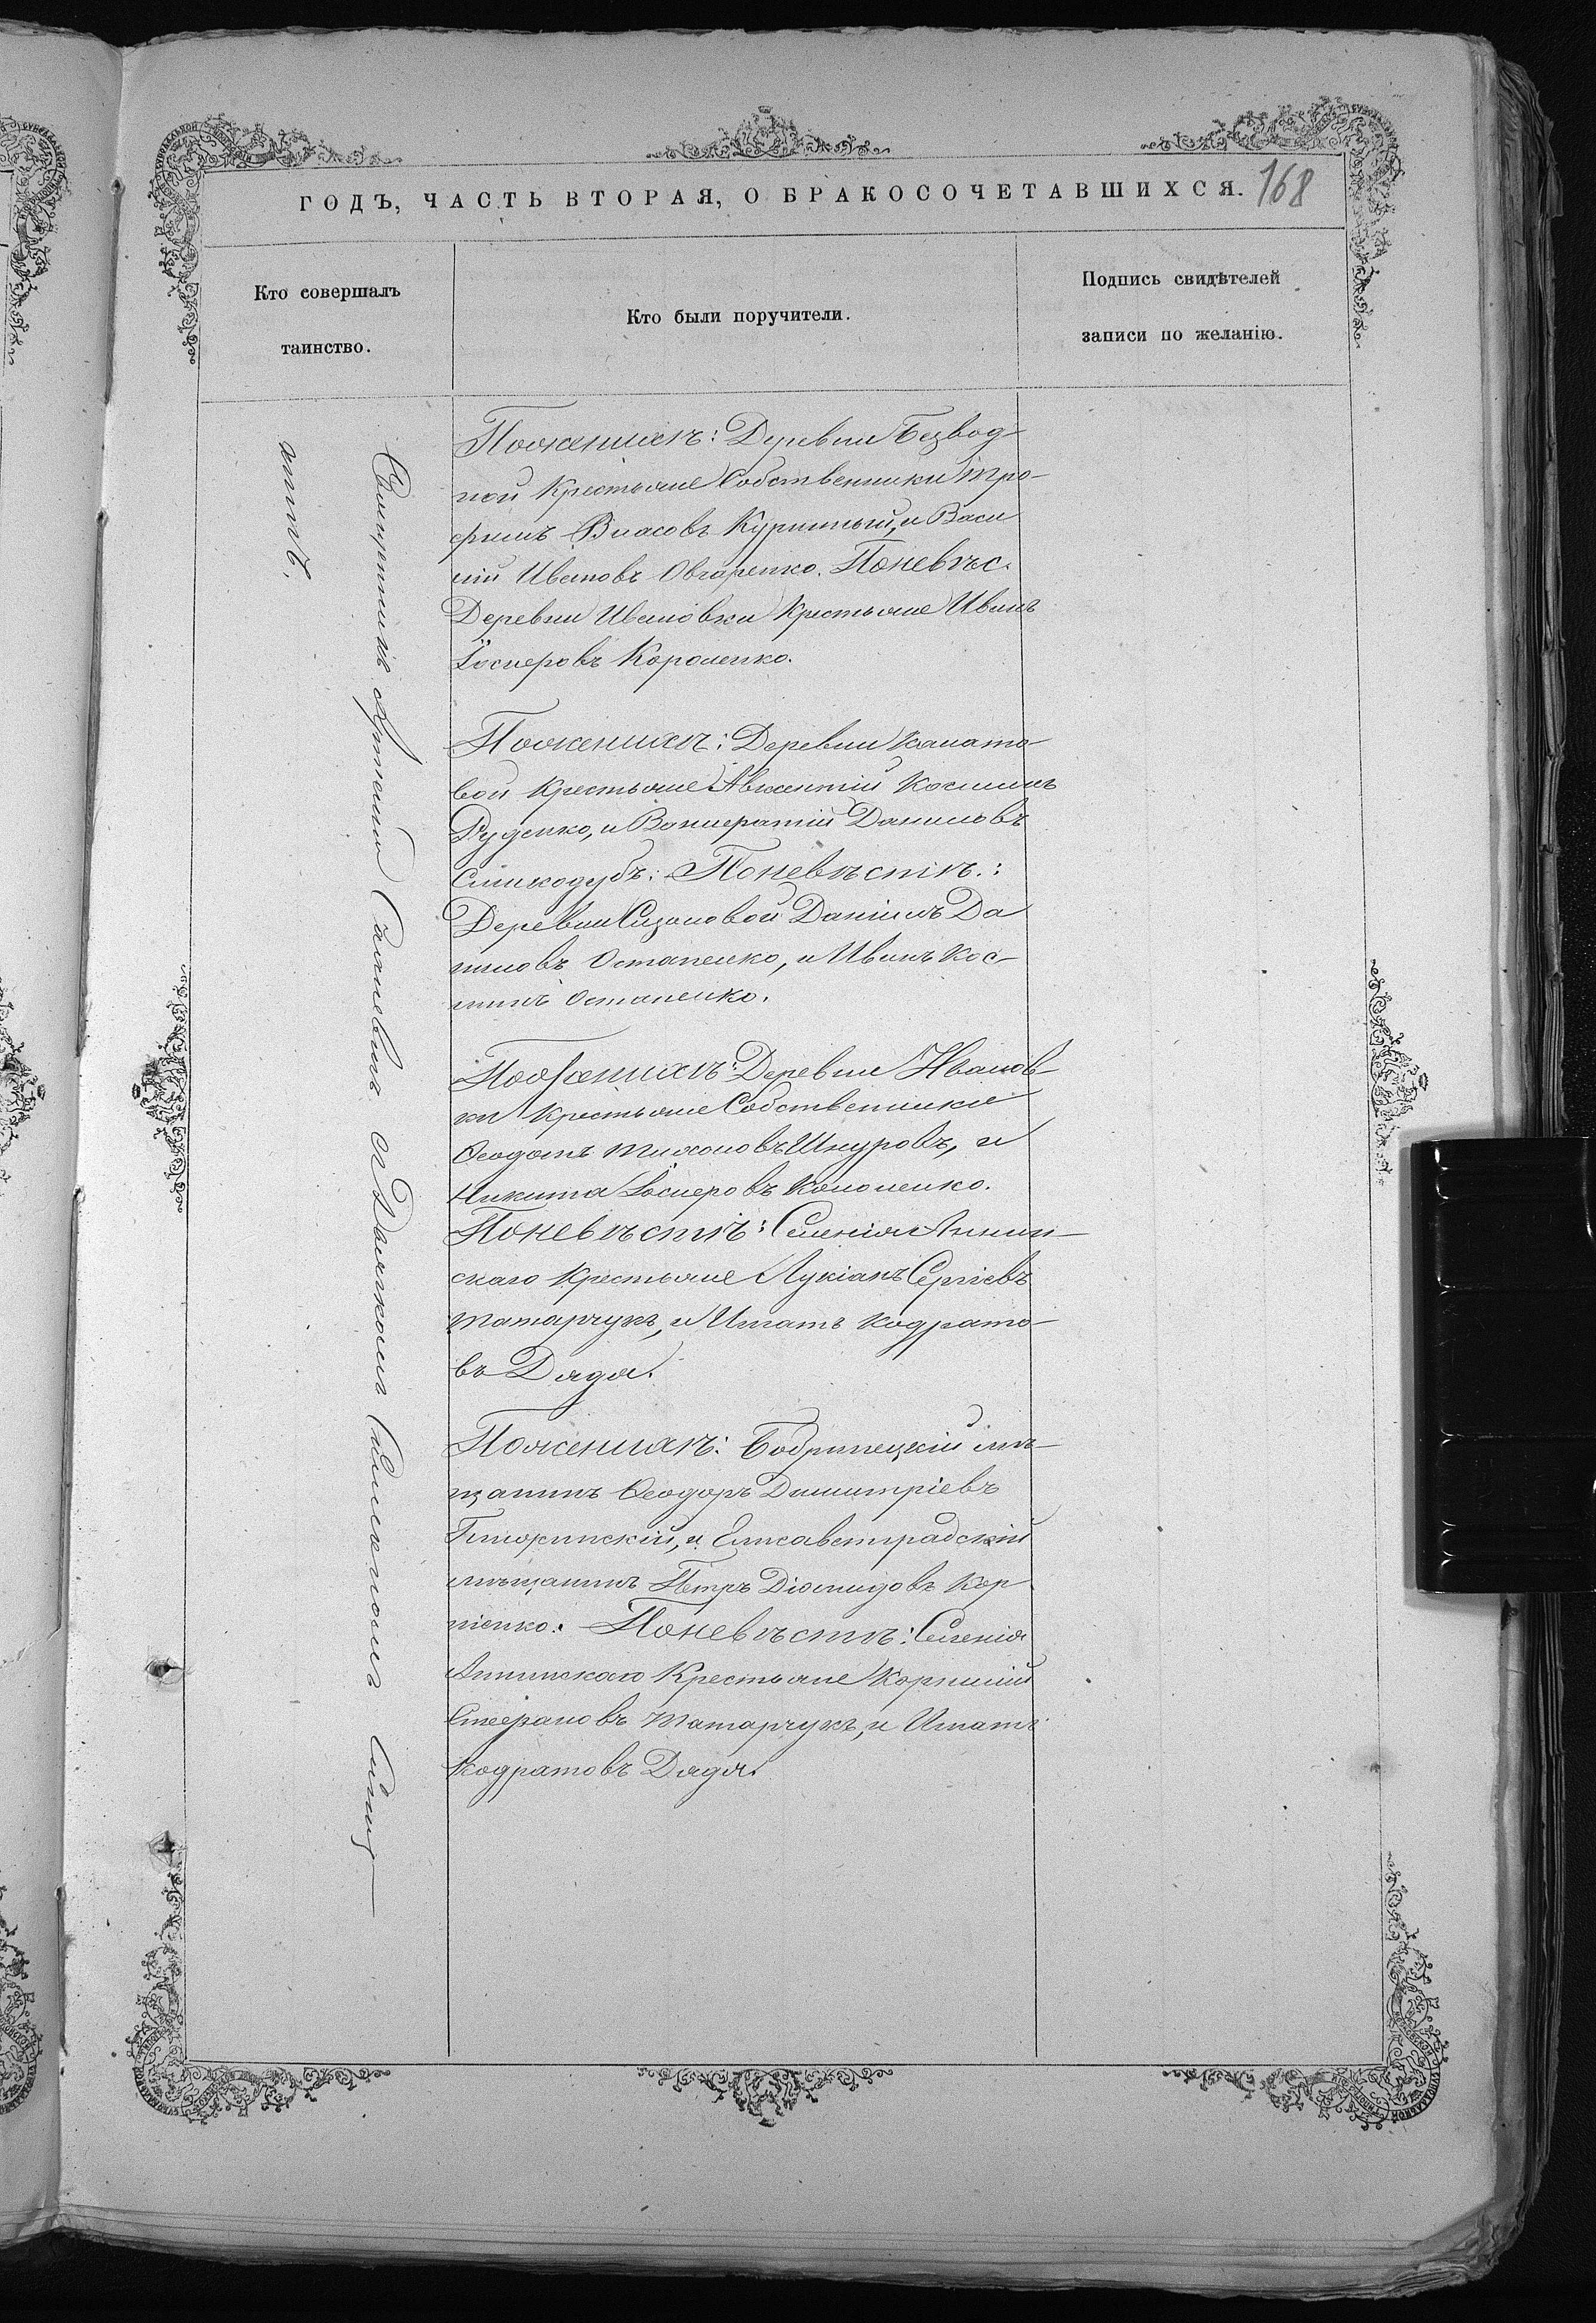 ГОДЪ, ЧАСТЬ ВТОРАЯ, О БРАКОСОЧЕТАВШИХСЯ.
168
Кто совершалъ
таинство.
Кто были поручители.
Подпись свидѣтелей
записи по желанію.
Священникъ Артемій съ Дьячкомъ
Поженихѣ: Деревни Безвод-
ной Крестьяне Собственники Тро-
фимъ Власовъ Куринный, и Васи
лій Ивановъ Овчаренко. Поневѣс.
Деревни Ивановки Крестьяне Иванъ
Іосифовъ Короленко.
Поженихѣ: Деревни Камато-
вой Крестьяне Авксентій Косминъ
Руденко, и Вонифатій Даниловъ
Синкодубъ: Поневѣстѣ.:
Деревни Сазоновой Даніилъ Да
ниловъ Остапенко, и Иванъ Кос-
минъ Остапенко.
Поженихѣ: Деревни Иванов-
ки Крестьяне Собственники
Ѳеодотъ Тихоновъ Шнуровъ, и
Никита Іосифовъ Кононенко.
Поневѣстѣ: Селенія Аннин-
скаго Крестьяне Лукіанъ Сергіевъ
Татарчукъ, и Игнатъ Кодрато-
въ Дядя.
Поженихѣ: Бобринецкій мѣ-
щанинъ Ѳеодоръ Димитріевъ
и Елисаветградскій
мѣщанинъ Петръ Діомидовъ Кор
ніенко. Поневѣстѣ: Селенія
Аннинскаго Крестьяне Корнилій
Стефановъ Татарчукъ, и Игнатъ
Кодратовъ Дядя.